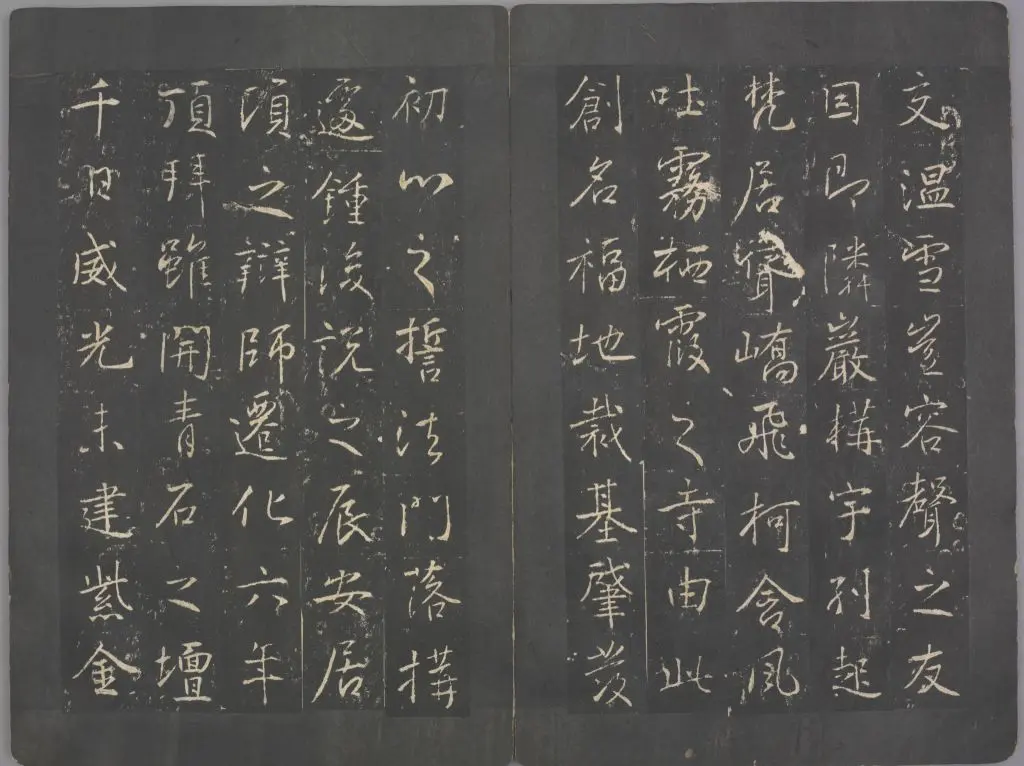 文温雪豈容聲之友
因即隣巖構宇列起
梵居聳嶠飛柯含風
吐霧栖霞之寺由此
創名福地裁基肇發
初心之誓法門落構
遽鍾後說之辰安居
頃之辯師遷化六年
頂拜雖開青石之壇
千日威光未建紫金